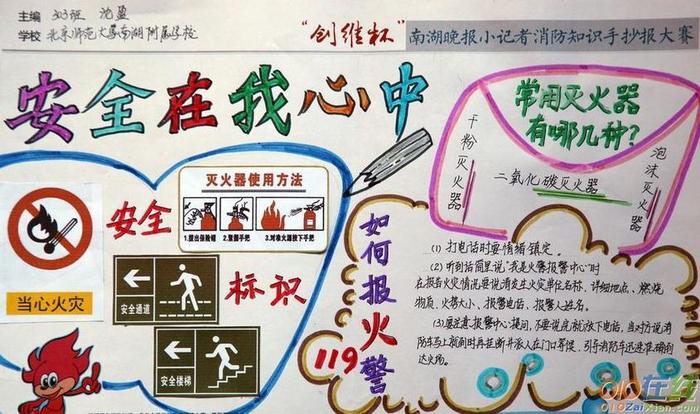 主编 303班 沈盈
学校 北京师范大学南湖附属学校
“创维杯”南湖晚报小记者消防知识手抄报大赛
安全在我心中
常用灭火器
有哪几种?
干粉灭火器
二氧化碳灭火器
泡沫灭火器
安全
标识
灭火器使用方法
1.拔出保险销
2.紧握手把
3.对准火源按下手把
当心火灾
安全通道
安全楼梯
如何报火警
119
(1) 打电话时要情绪镇定。
(2) 听到话筒里说“我是火警报警中心”时
在报告火灾情况要说清发生火灾单位名称、详细地点、燃烧
物质、火势大小、报警电话、报警人姓名。
(3)要注意报警中心提问,不要说完就放下电话,当对方说消
防车马上就到时再挂断并派人在门口等候,引导消防车迅速准确到
达火场。
010在线
010ZaiXian.com